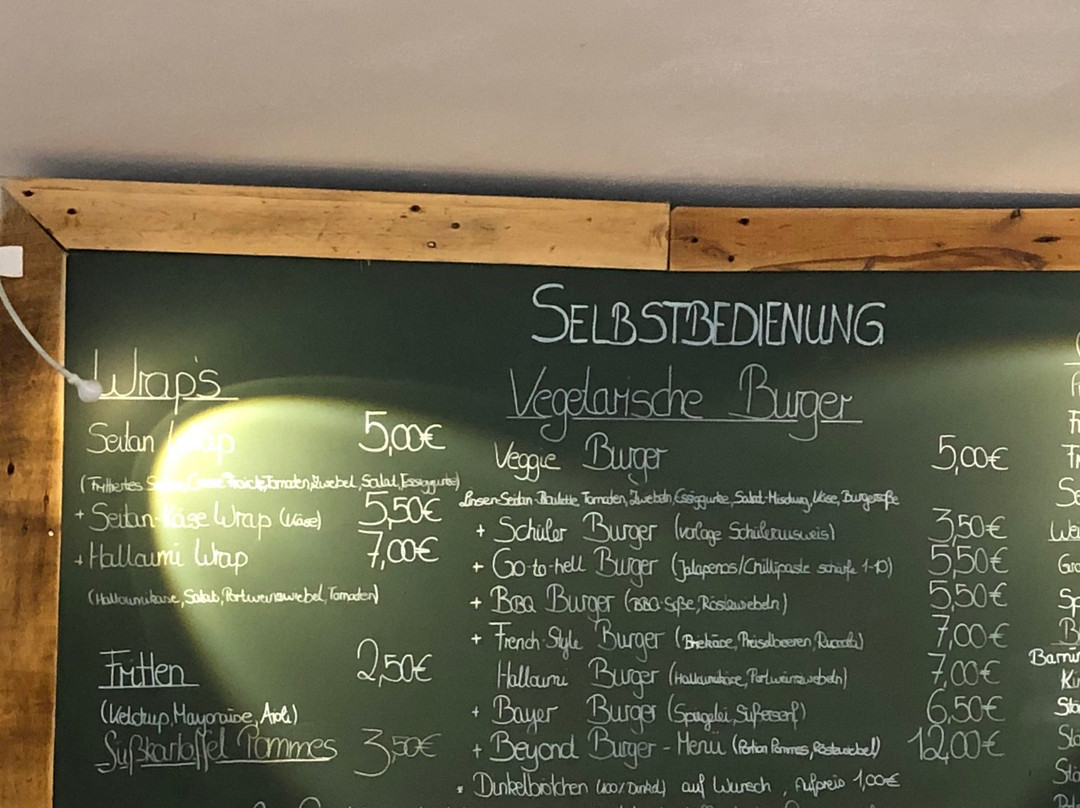 SELBSTBEDIENUNG
Wrap's
Seitan Wrap 5,00€
Tomaten, Zwebel, Salat, Essiggurke)
+ Seitan-Käse Wrap (Käse) 5,50€
+ Halloumi Wrap 7,00€
(Halloumikäse, Salat, Portweinzwiebel, Tomaten)
Fritten 2,50€
(Ketchup, Mayonaise, Aioli)
Süßkartoffel Pommes 3,50€
Vegetarische Burger
Veggie Burger 5,00€
Linsen-Seitan-Boulette, Tomaten, Zwebeln, Essiggurke, Salat-Mischung, Käse, Burgersoße
+ Schüler Burger (vorlage Schülerausweis) 3,50€
+ Go-to-hell Burger (Jalapenos/Chillipaste schärfe 1-10) 5,50€
+ BBQ Burger (BBQ-Soße, Röstzwiebeln) 5,50€
+ French-Style Burger (Briekäse, Preiselbeeren, Rucola) 7,00€
Halloumi Burger (Halloumikäse, Portweinzwiebeln) 7,00€
+ Bayer Burger (Spiegelei, Süßersenf) 6,50€
+ Beyond Burger - Menü (Portion Pommes, Röstzwiebel) 12,00€
* Dunkelbrötchen auf Wunsch, Aufpreis 1,00€